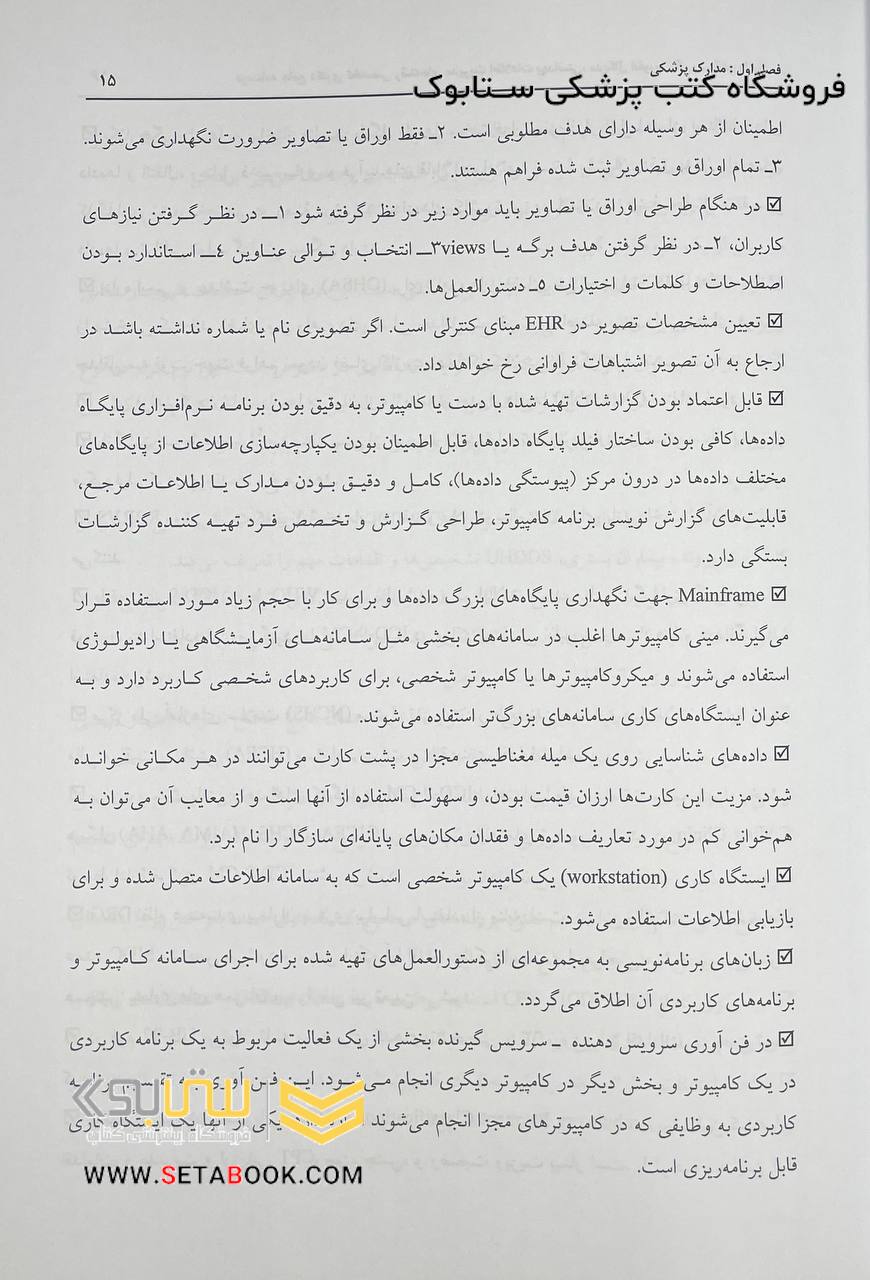 فصل اول : مدارک پزشکی ۱۵
فروشگاه کتب پزشکی ستابوک
اطمینان از هر وسیله دارای هدف مطلوبی است. ۲ـ فقط اوراق یا تصاویر ضرورت نگهداری می‌شوند.
۳ـ تمام اوراق و تصاویر ثبت شده فراهم هستند.
☑ در هنگام طراحی اوراق یا تصاویر باید موارد زیر در نظر گرفته شود ۱ـ در نظر گرفتن نیازهای
کاربران، ۲ـ در نظر گرفتن هدف برگه یا views ۳ـ انتخاب و توالی عناوین ٤ـ استاندارد بودن
اصطلاحات و کلمات و اختیارات ٥ـ دستورالعمل‌ها.
☑ تعیین مشخصات تصویر در EHR مبنای کنترلی است. اگر تصویری نام یا شماره نداشته باشد در
ارجاع به آن تصویر اشتباهات فراوانی رخ خواهد داد.
☑ قابل اعتماد بودن گزارشات تهیه شده با دست یا کامپیوتر، به دقیق بودن برنامه نرم‌افزاری پایگاه
داده‌ها، کافی بودن ساختار فیلد پایگاه داده‌ها، قابل اطمینان بودن یکپارچه‌سازی اطلاعات از پایگاه‌های
مختلف داده‌ها در درون مرکز (پیوستگی داده‌ها)، کامل و دقیق بودن مدارک یا اطلاعات مرجع،
قابلیت‌های گزارش نویسی برنامه کامپیوتر، طراحی گزارش و تخصص فرد تهیه کننده گزارشات
بستگی دارد.
☑ Mainframe جهت نگهداری پایگاه‌های بزرگ داده‌ها و برای کار با حجم زیاد مورد استفاده قرار
می‌گیرند. مینی کامپیوترها اغلب در سامانه‌های بخشی مثل سامانه‌های آزمایشگاهی یا رادیولوژی
استفاده می‌شوند و میکروکامپیوترها یا کامپیوتر شخصی، برای کاربردهای شخصی کاربرد دارد و به
عنوان ایستگاه‌های کاری سامانه‌های بزرگ‌تر استفاده می‌شوند.
☑ داده‌های شناسایی روی یک میله مغناطیسی مجزا در پشت کارت می‌توانند در هر مکانی خوانده
شود. مزیت این کارت‌ها ارزان قیمت بودن، و سهولت استفاده از آنها است و از معایب آن می‌توان به
هم‌خوانی کم در مورد تعاریف داده‌ها و فقدان مکان‌های پایانه‌ای سازگار را نام برد.
☑ ایستگاه کاری (workstation) یک کامپیوتر شخصی است که به سامانه اطلاعات متصل شده و برای
بازیابی اطلاعات استفاده می‌شود.
☑ زبان‌های برنامه‌نویسی به مجموعه‌ای از دستورالعمل‌های تهیه شده برای اجرای سامانه کامپیوتر و
برنامه‌های کاربردی آن اطلاق می‌گردد.
☑ در فن آوری سرویس دهنده ـ سرویس گیرنده بخشی از یک فعالیت مربوط به یک برنامه کاربردی
در یک کامپیوتر و بخش دیگر در کامپیوتر دیگری انجام می‌شود. این فن آوری به تقسیم برنامه
کاربردی به وظایفی که در کامپیوترهای مجزا انجام می‌شوند یکی از آنها یک ایستگاه کاری
قابل برنامه‌ریزی است.
ستابوک
فروشگاه اینترنتی کتاب
WWW.SETABOOK.COM